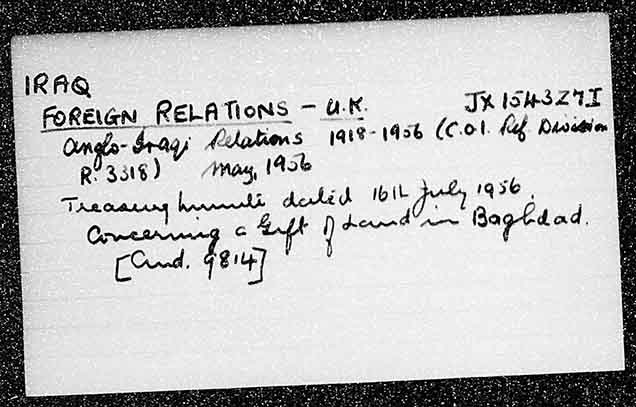 IRAQ
FOREIGN RELATIONS - U.K. JX 1543Z7I
Anglo-Iraqi Relations 1918-1956 (C.O.I. Ref. Division
R. 3318) May, 1956
Treasury Minute dated 16th July 1956.
Concerning a Gift of Land in Baghdad.
[Cmd. 9814]